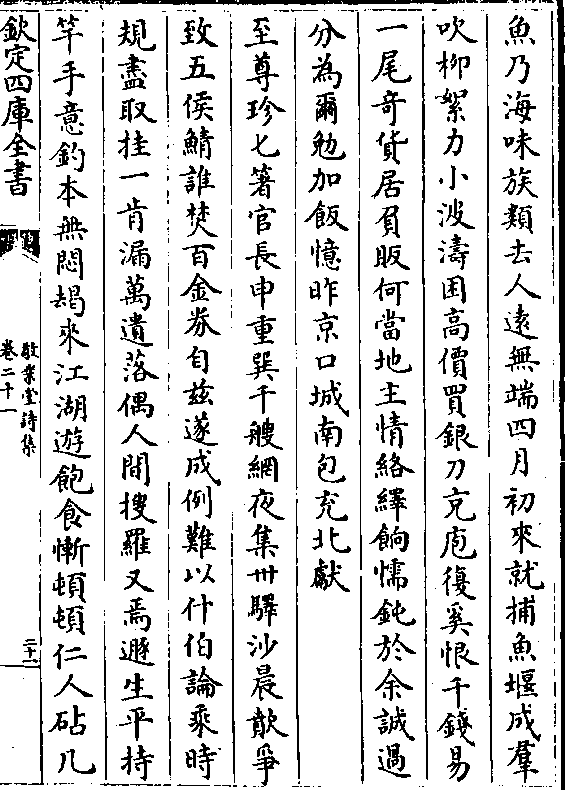 魚乃海味族類去人遠無端四月初來就捕魚堰成羣
吹柳絮力小波濤困高價買銀刀充庖復奚恨千錢易
一尾奇貨居負販何當地主情絡繹餉懦鈍於余誠過
分為爾勉加飯憶昨京口城南包充北獻
至尊珍匕箸官長申重巽千艘網夜集卅驛沙晨歕爭
致五侯鯖誰焚百金券自兹遂成例難以什伯論乘時
規盡取挂一肯漏萬遺落偶人間搜羅又焉遯生平持
竿手意釣本無悶朅來江湖遊飽食慚頓頓仁人砧几
欽定四庫全書
敬業堂詩集
卷二十一
二十一